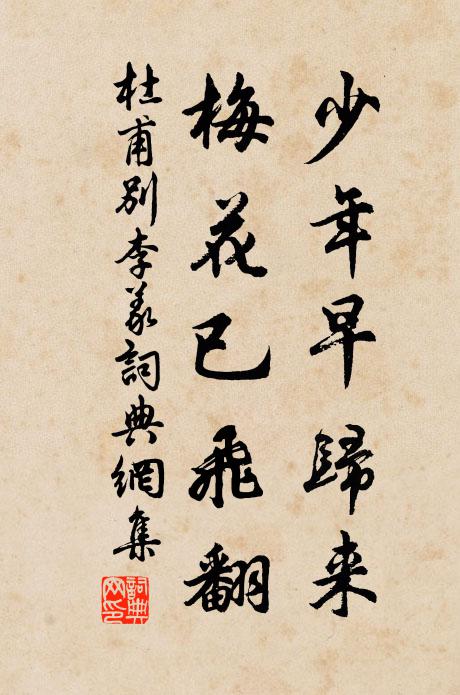 少年早歸来
梅花已飛翻
杜甫別李義詞典網集
詞典网印